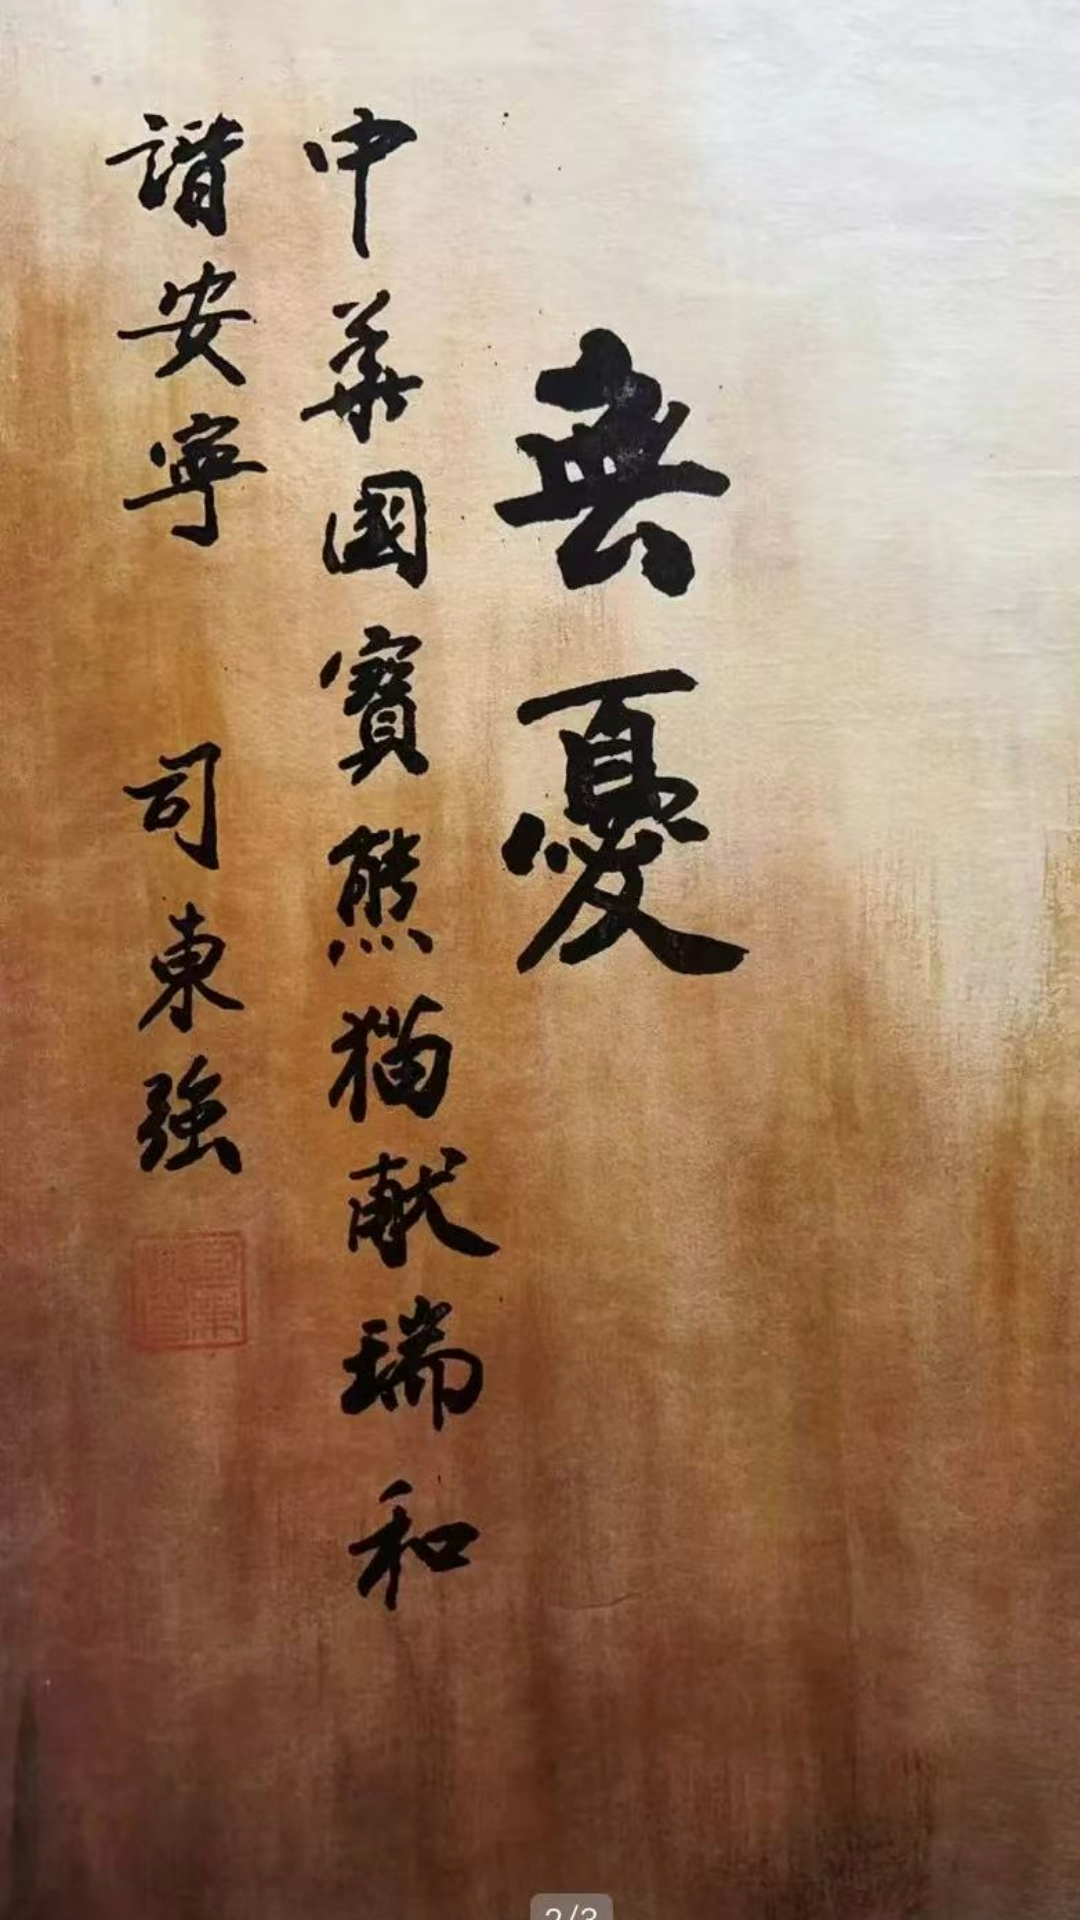 無憂
中華國寶熊猫献瑞和
諧安寧 司東強
2/3